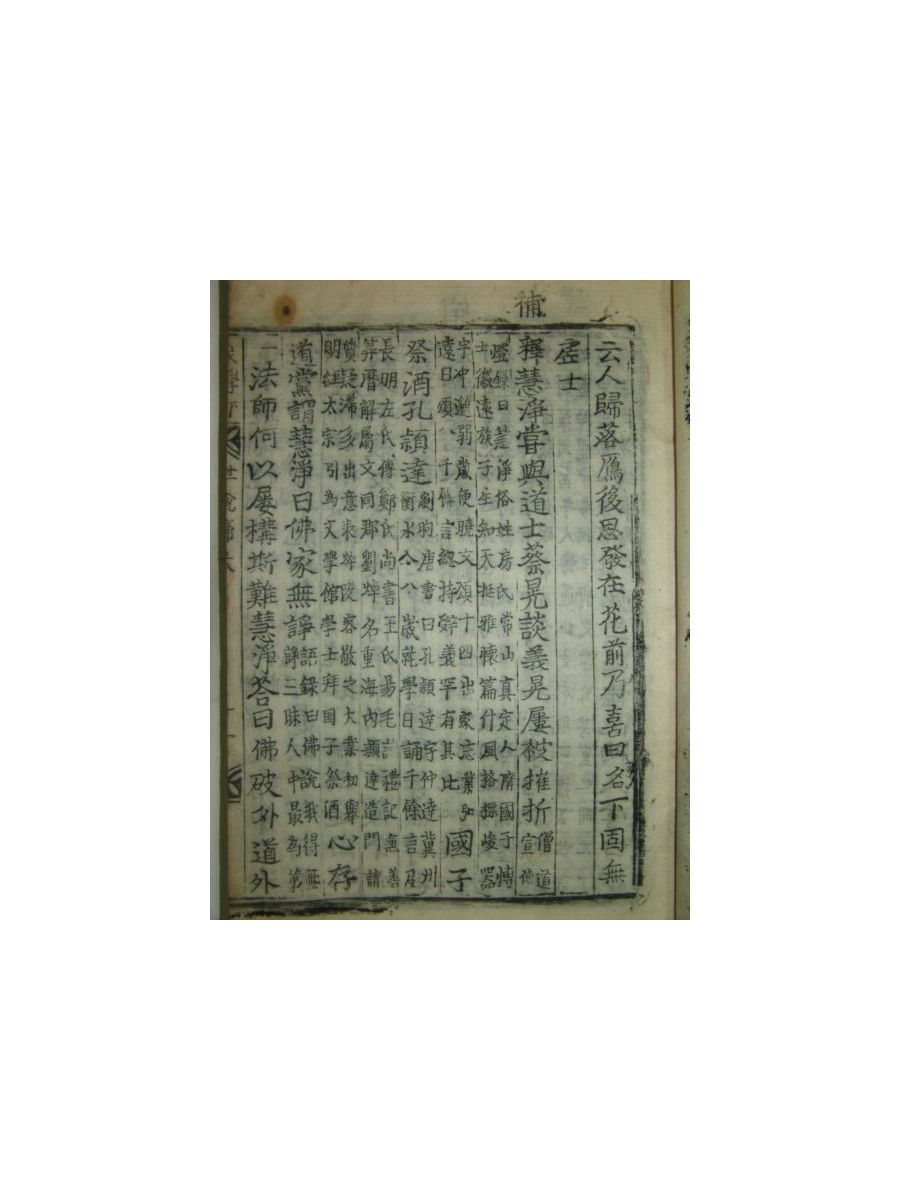 補
云人歸落鴈後思發在花前乃喜曰名下固無
虗士
釋慧淨甞與道士蔡晃談義晃屢被摧折道宣續
僧傳
燈錄曰慧淨俗姓房氏常山真定人隋國子博
士徽遠族子生知天挺雅懷篇什風格標峻器
宇冲邈弱歲便曉文頌十四出家志業弘
遠日頌八千餘言總持辭義罕有其比國子
祭酒孔頴達劉昫唐書曰孔頴達字仲達冀州
衡水人八歲就學日誦千餘言及
長明左氏傳鄭氏尚書王氏易毛詩禮記兼善
筭曆解屬文同郡劉焯名重海內頴達造門請
質疑滯多出意表焯改容敬之大業初舉
明經太宗引為文學館學士拜国子祭酒心存
道黨謂慧淨曰佛家無諍語錄曰佛說我得無
諍三昧人中最為第
一法師何以屢構斯難慧淨荅曰佛破外道外
世說補